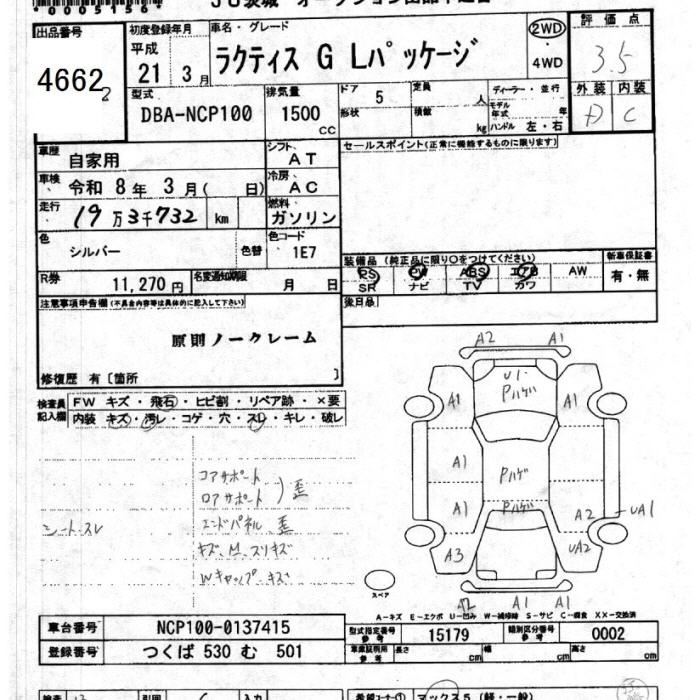 *00051564*
出品番号
4662
2
初度登録年月
平成
21 3月
車名・グレード
ラクティス G Lパッケージ
2WD
・
4WD
評価点
3.5
外装 内装
D C
型式
DBA-NCP100
排気量
1500
cc
ドア 5
形状
定員 人
積載 kg
ディーラー・並行
モデル年式 年
ハンドル 左・右
車歴 自家用
シフト AT
セールスポイント(正常に機能するものに限ります)
車検 令和 8年 3月( 日)
冷房 AC
走行 19万3千732 km
燃料 ガソリン
色 シルバー 色替
色コード 1E7
装備品 (純正品に限り○をつけてください)
新車保証書
PS PW ABS エアB AW
SR ナビ TV カワ
有・無
R券 11,270円
名変通知期限 月 日
後日品
注意事項申告欄(不具合内容等は具体的に記入して下さい)
原則ノークレーム
修復歴 有〔箇所 〕
検査員記入欄
FW キズ・飛石・ヒビ割・リペア跡・×要
内装 キズ・汚レ・コゲ・穴・スレ・キレ・破レ
コアサポート
ロアサポート )歪
シートスレ
エンドパネル 歪
キズ、M、スリキズ
Wキャップ・キズ
A2 A1
U1
Pハゲ
A1 A1
A1 Pハゲ
A1 Pハゲ A2 UA1
A3 UA2
A2 A1 A1
スペア
A-キズ E-エクボ U-凹み W-補修跡 S-サビ C-腐食 XX-交換済
車台番号 NCP100-0137415
型式指定番号 参考 15179
類別区分番号 参考 0002
登録番号 つくば 530 む 501
車庫証明用 参考 長さ cm 幅 cm 高さ cm
検査 引回 入力
希望コーナー① マックス5(軽・一般)